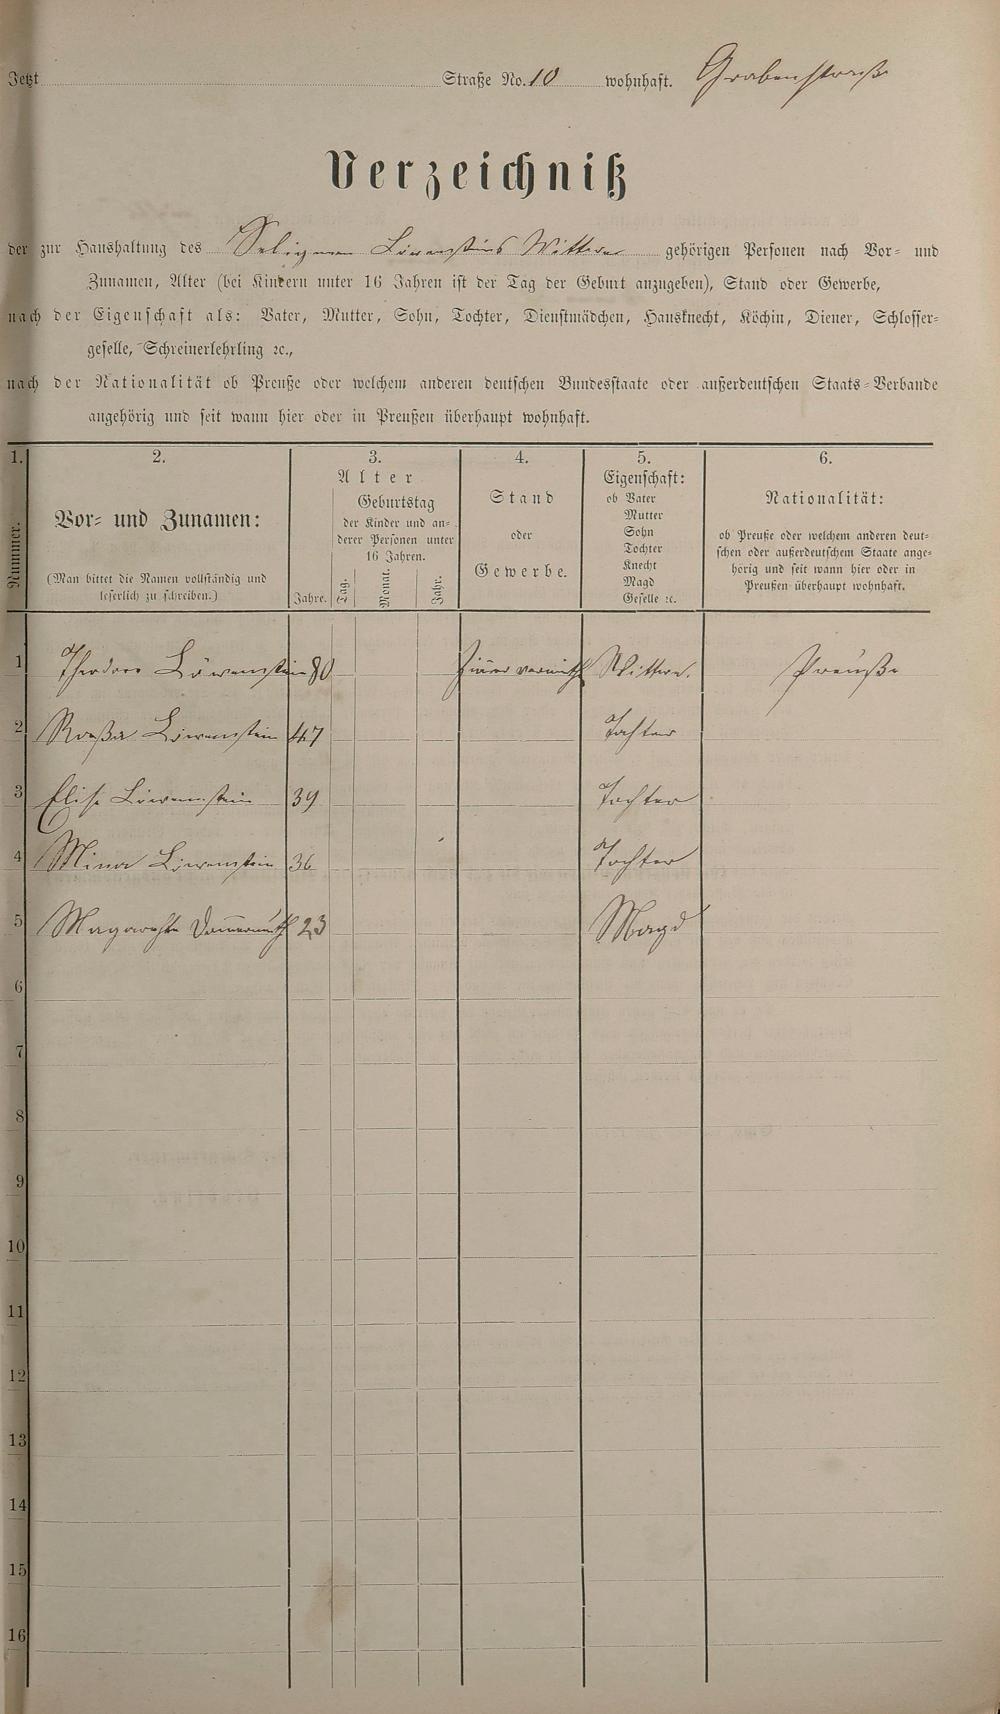 Jetzt Straße No. 10 wohnhaft. Grabenstraße
Verzeichniß
der zur Haushaltung des Seligman Löwensteins Wittwe gehörigen Personen nach Vor- und
Zunamen, Alter (bei Kindern unter 16 Jahren ist der Tag der Geburt anzugeben), Stand oder Gewerbe,
nach der Eigenschaft als: Vater, Mutter, Sohn, Tochter, Dienstmädchen, Hausknecht, Köchin, Diener, Schlosser-
geselle, Schreinerlehrling ꝛc.,
nach der Nationalität ob Preuße oder welchem anderen deutschen Bundesstaate oder außerdeutschen Staats-Verbande
angehörig und seit wann hier oder in Preußen überhaupt wohnhaft.
1. 2. 3. 4. 5. 6.
Nummer.
Vor- und Zunamen:
(Man bittet die Namen vollständig und
leserlich zu schreiben.)
Alter
Jahre.
Geburtstag
der Kinder und an-
derer Personen unter
16 Jahren.
Tag. Monat. Jahr.
Stand
oder
Gewerbe.
Eigenschaft:
ob Vater
Mutter
Sohn
Tochter
Knecht
Magd
Geselle ꝛc.
Nationalität:
ob Preuße oder welchem anderen deut-
schen oder außerdeutschem Staate ange-
hörig und seit wann hier oder in
Preußen überhaupt wohnhaft.
1 Theodore Löwenstein 80 Wittwe. Preuße
2 Roeßa Löwenstein 47 Tochter
3 Elise Löwenstein 39 Tochter
4 Mina Löwenstein 36 Tochter
5 Magarethe 23 Magd
6
7
8
9
10
11
12
13
14
15
16